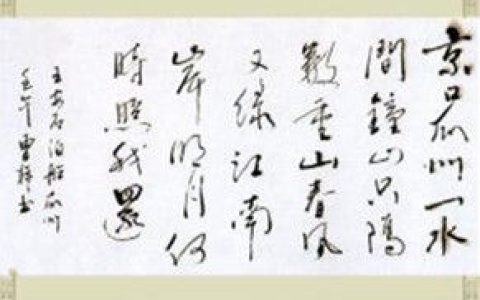 京口瓜州一水
間鐘山只隔
數重山春风
又绿江南
岸明月何
時照我還
王安石泊船瓜州
壬午曹